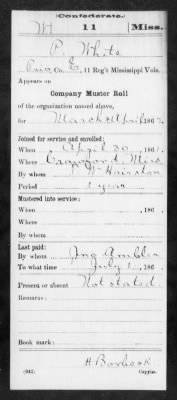 (Confederate.)
W 11 Miss.
P. White
Priv, Co. E, 11 Reg't Mississippi Vols.
Appears on
Company Muster Roll
of the organization named above,
for March & April, 186
Joined for service and enrolled:
When April 30, 186
Where Crawford, Miss
By whom W. Hairston
Period 1 year
Mustered into service:
When , 186 .
Where
By whom
Last paid:
By whom Jno. Ambler
To what time July 1, 186
Present or absent Not stated
Remarks:
Book mark:
(642) Copyist.